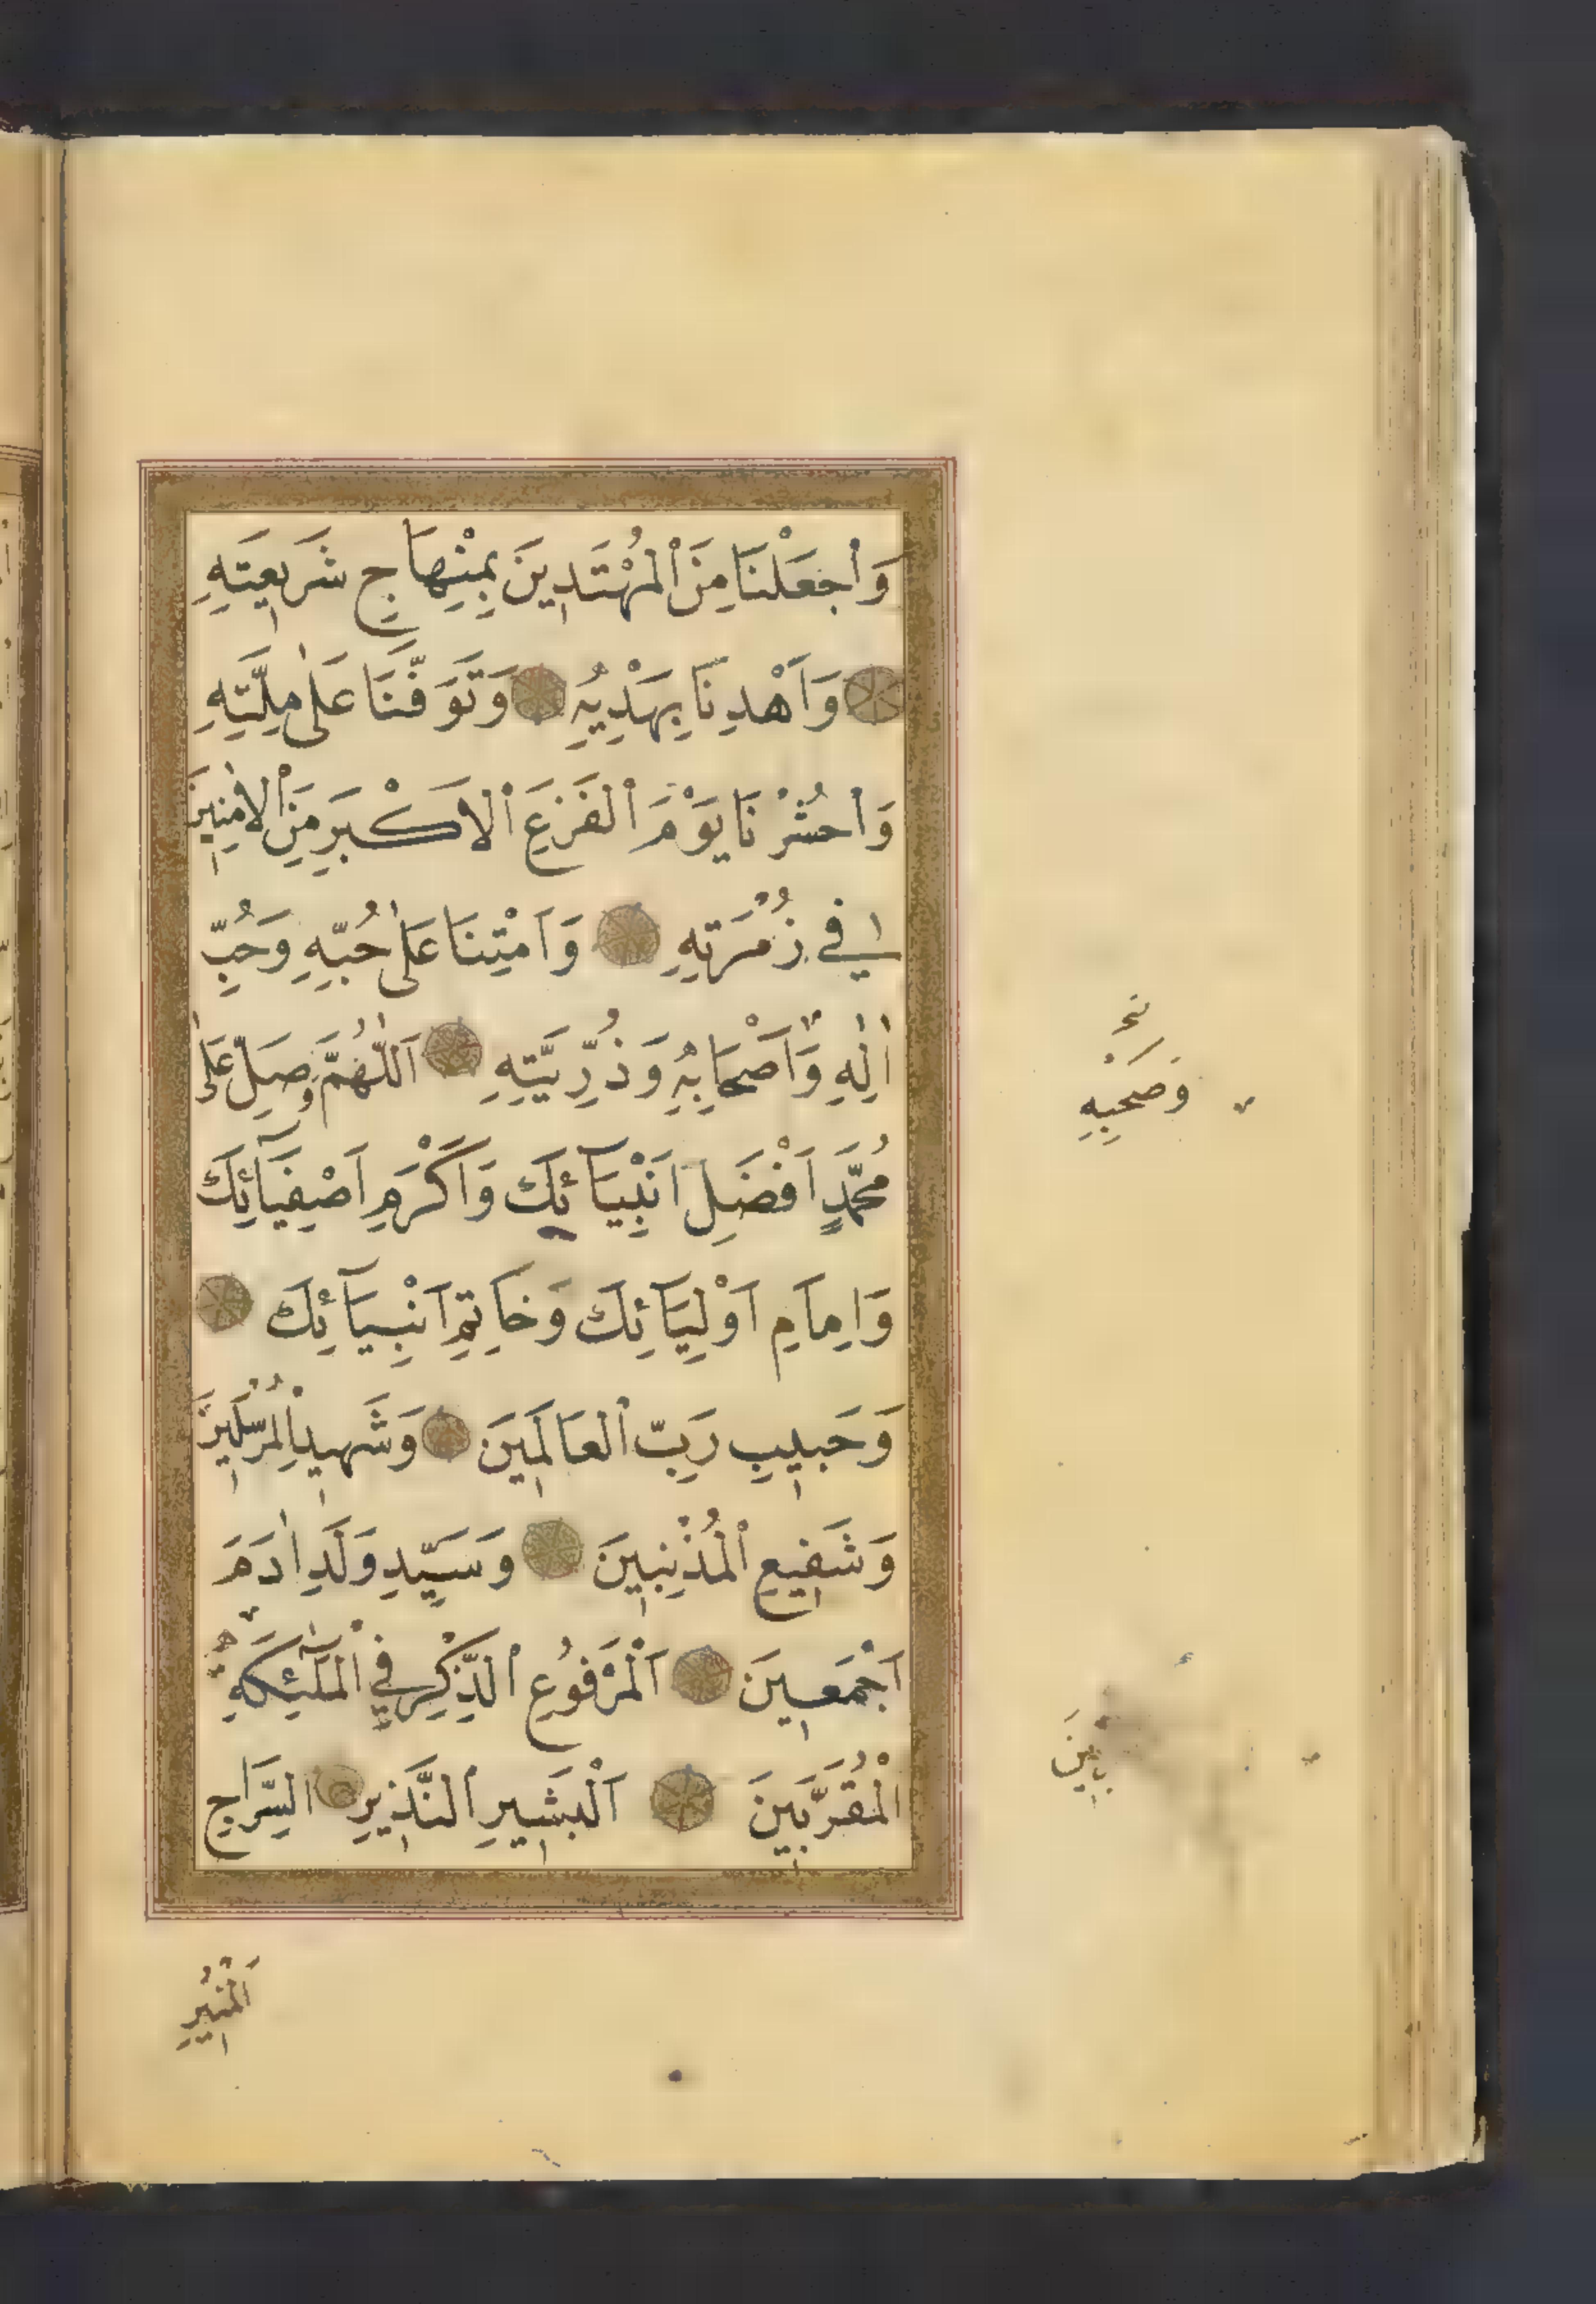 وَاجْعَلْنَا مِنَ الْمُهْتَدِينَ بِمِنْهَاجِ شَرِيعَتِهِ
وَاَهْدِنَا بِهَدْيِهِ وَتَوَفَّنَا عَلٰى مِلَّتِهِ
وَاحْشُرْنَا يَوْمَ الْفَزَعِ الْاَكْبَرِ مِنَ الْاٰمِنِينَ
فِي زُمْرَتِهِ وَاَمِتْنَا عَلٰى حُبِّهِ وَحُبِّ
اٰلِهِ وَاَصْحَابِهِ وَذُرِّيَّتِهِ اَللّٰهُمَّ وَصَلِّ عَلٰى
مُحَمَّدٍ اَفْضَلِ اَنْبِيَآئِكَ وَاَكْرَمِ اَصْفِيَآئِكَ
وَاِمَامِ اَوْلِيَآئِكَ وَخَاتِمِ اَنْبِيَآئِكَ
وَحَبِيبِ رَبِّ الْعَالَمِينَ وَشَهِيدِ الْمُرْسَلِينَ
وَشَفِيعِ الْمُذْنِبِينَ وَسَيِّدِ وَلَدِ اٰدَمَ
اَجْمَعِينَ اَلْمَرْفُوعِ الذِّكْرِ فِي الْمَلٰٓئِكَةِ
الْمُقَرَّبِينَ اَلْبَشِيرِ النَّذِيرِ السِّرَاجِ
اَلْمُنِيرِ
وَصَحْبِهِ